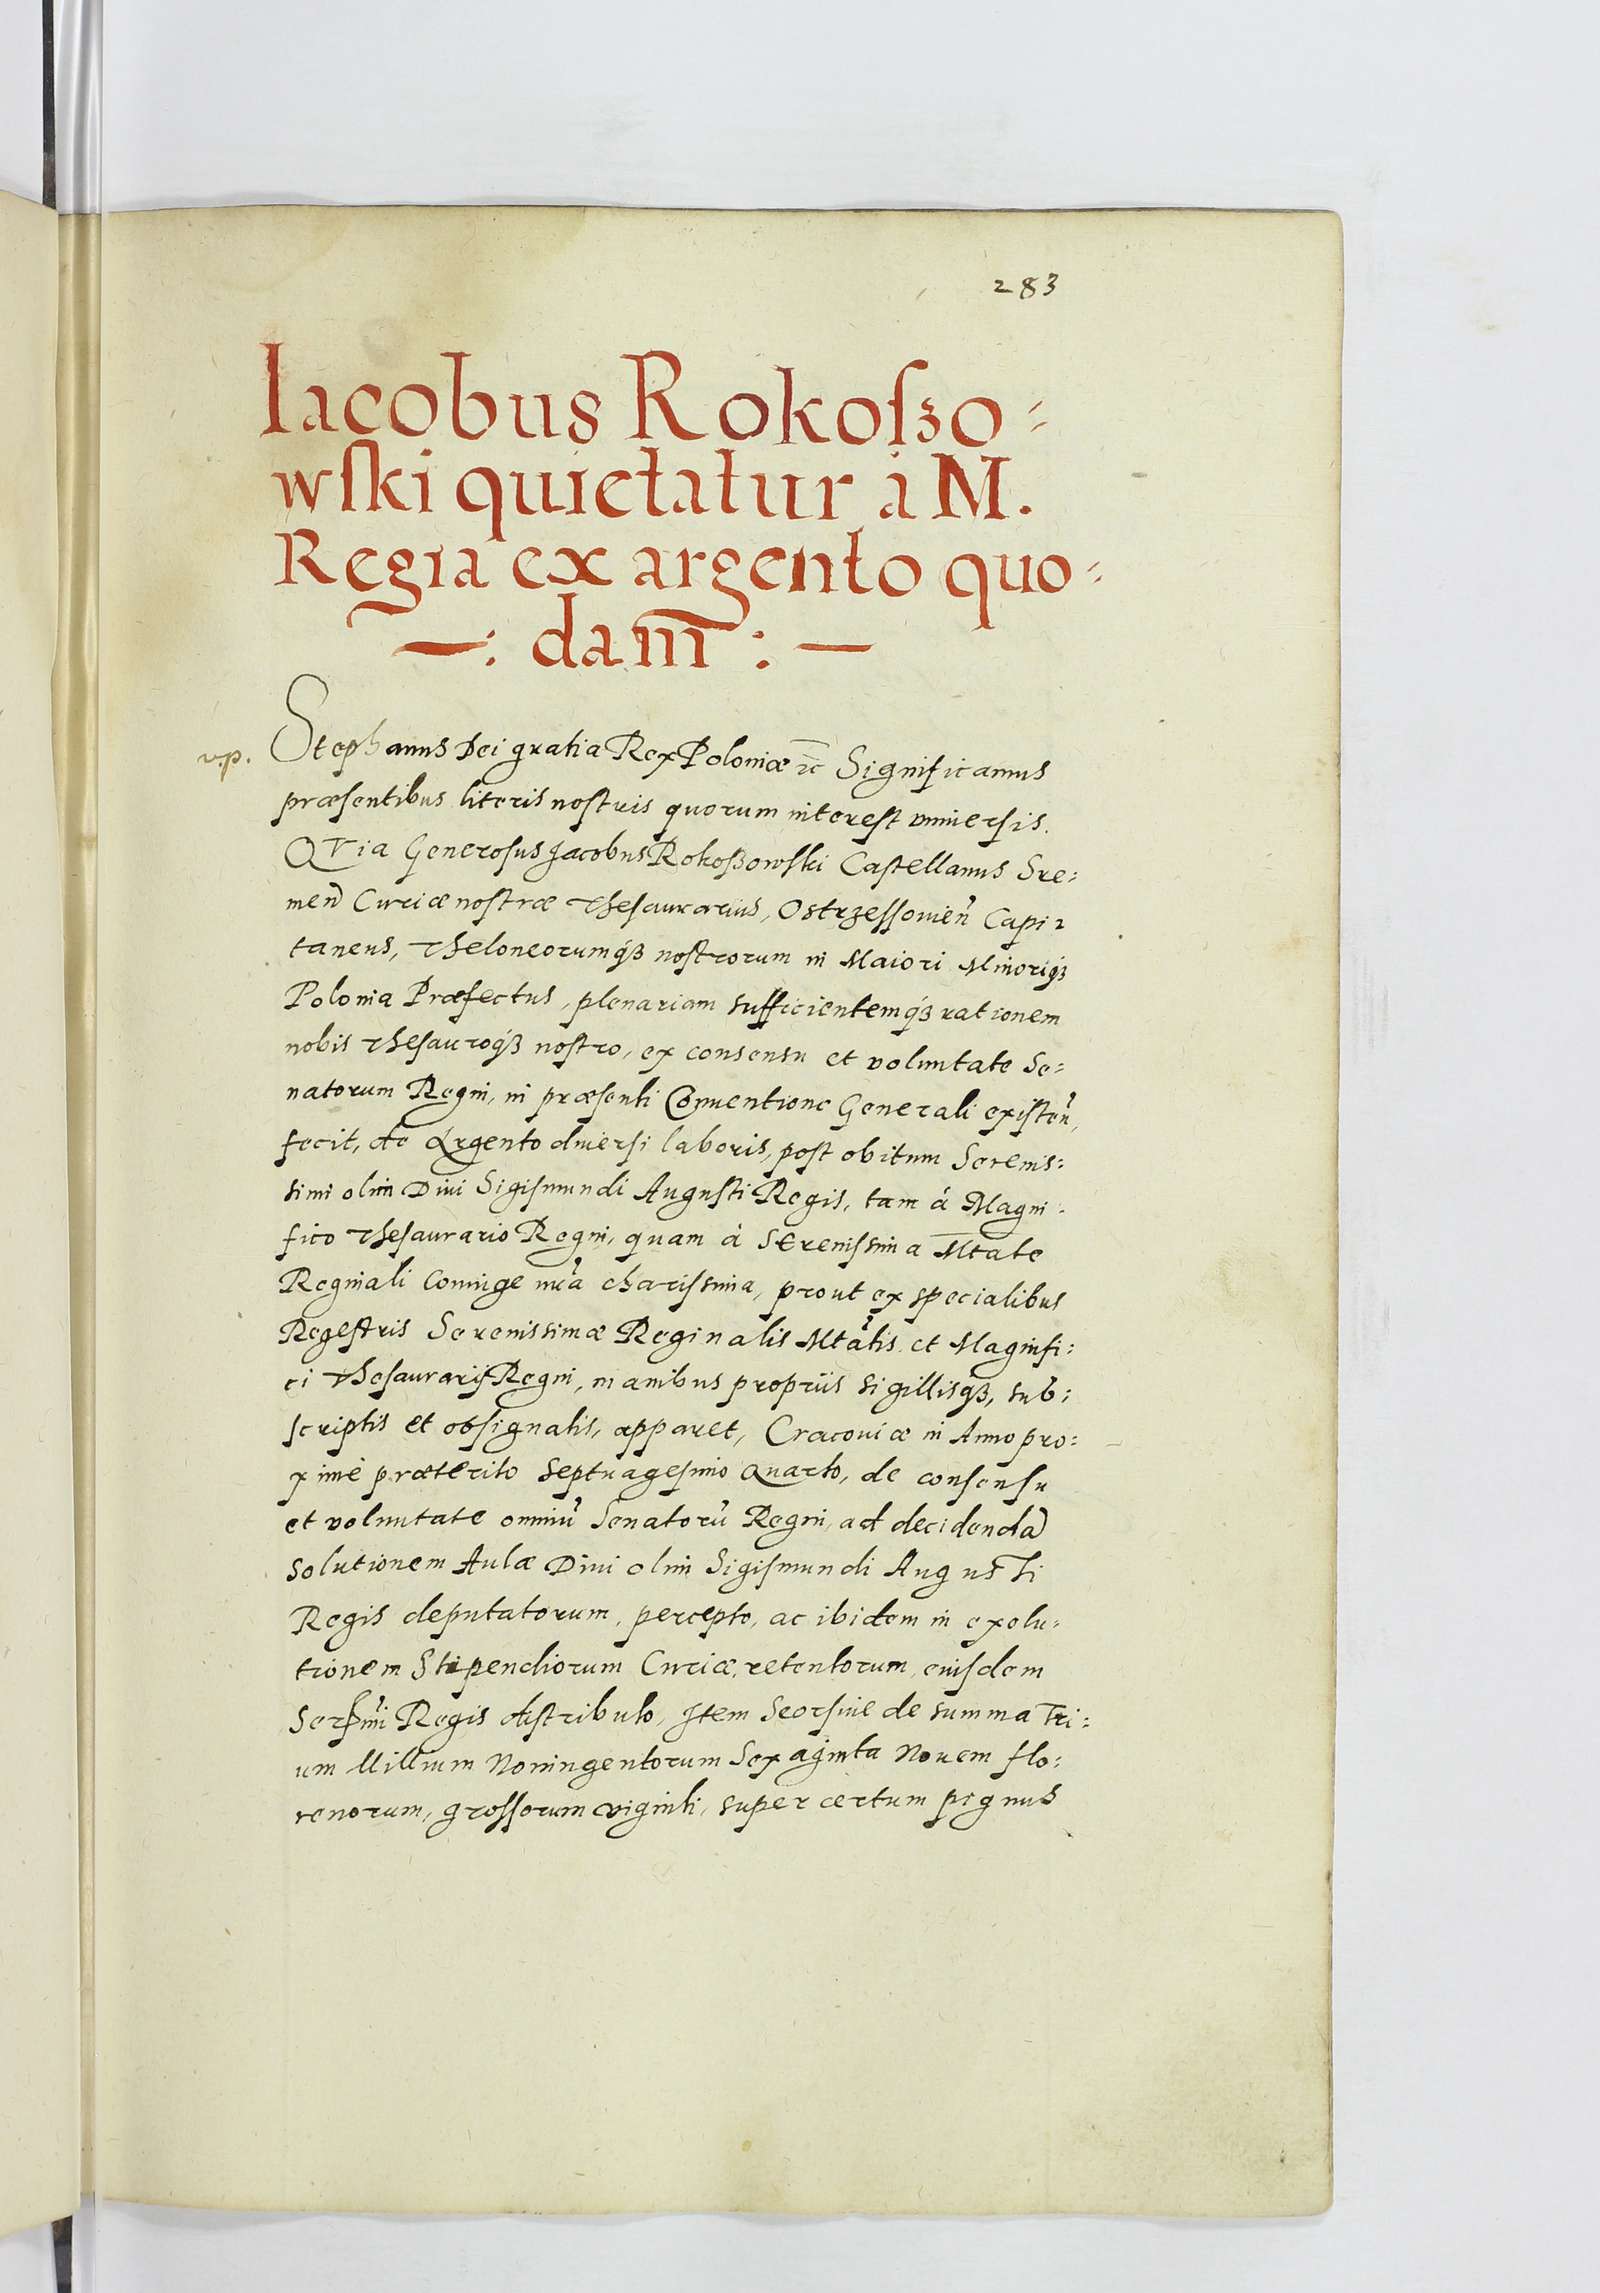 283
Iacobus Rokoſzo=
wſki quietatur à M.
Regia ex argento quo=
—: dam :—
v.p.
Stephanus Dei gratia Rex Poloniæ ꝛc Significamus
præsentibus literis noſtris quorum intereſt vniuerſis.
QVia Generoſus Jacobus Rokoſzowſki Caſtellanus Sre=
meñ Curiæ noſtræ Theſaurarius, Oſtrzeſſouieñ Capi=
taneus, Theloneorumqꝫ noſtrorum in Maiori Minoriqꝫ
Polonia Præfectus, plenariam sufficientemqꝫ rationem
nobis Theſauroqꝫ noſtro, ex consensu et voluntate Se=
natorum Regni, in præſenti Conuentione Generali exiſteñ,
fecit, de Argento diuerſi laboris, poſt obitum Serenis=
simi olim Diui Sigiſmundi Auguſti Regis, tam à Magni=
fico Theſaurario Regni, quam à Serenissima Mtate
Reginali Coniuge nrã chariſſima, prout ex specialibus
Regeſtris Serenissimæ Reginalis Mtãtis et Magnifi=
ci Theſaurarij Regni, manibus proprijs sigillisqꝫ, sub=
ſcriptis et obſignatis, apparet, Cracouiæ in Anno pro=
ximè præterito Septuagesimo Quarto, de conſenſu
et voluntate omniũ Senatorũ Regni, ad decidendã
Solutionem Aulæ Diui olim Sigiſmundi Auguſti
Regis deputatorum, percepto, ac ibidem in exolu=
tionem Stipendiorum Curiæ, retentorum, eiuſdem
Serſmi Regis diſtributo, Item Seorſiue de summa Tri=
um Millium Noningentorum Sexaginta Nouem flo=
renorum, groſſorum viginti, super certum pignus